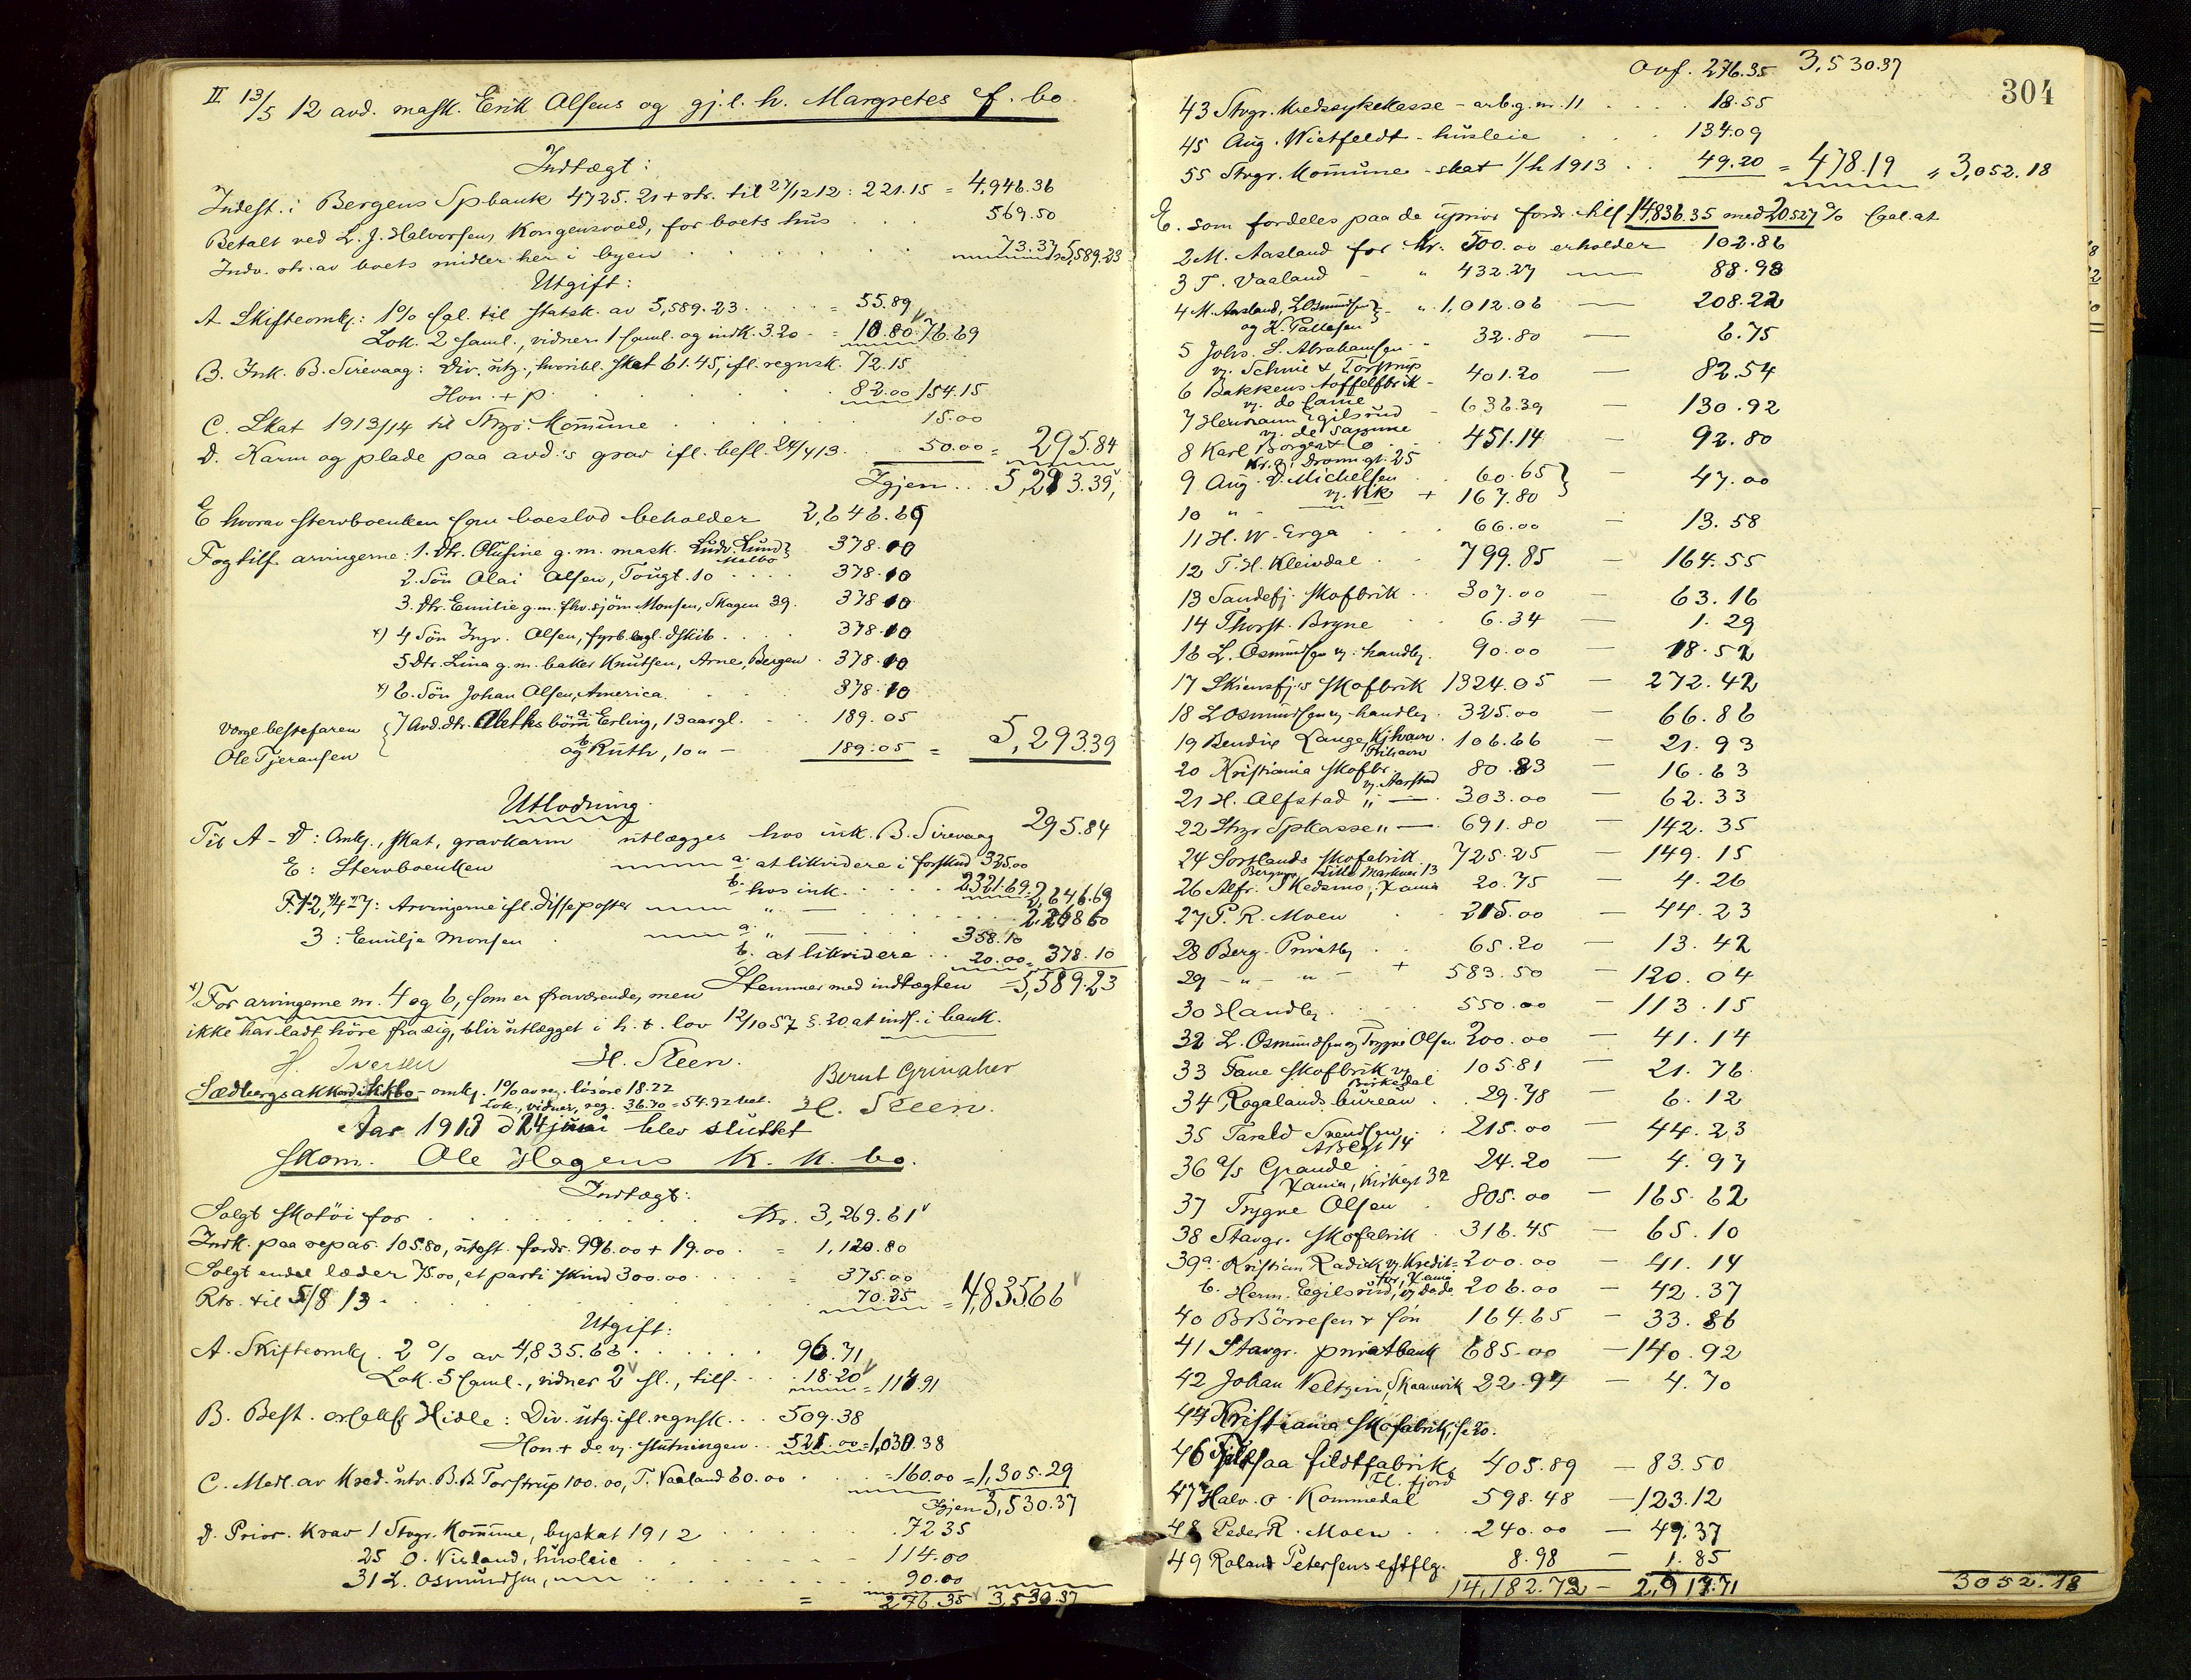 II 13/5 12 avd. mask. Erik Olsens og gj. l. h. Margretes ef. bo
Indtægt:
Indest. i Bergens Spbank 4725.21 + rtr. til 27/12 12: 221.15 = 4,946.36
Betalt ved L. J. Halvorsen, Kongensvold, for boets hus . . . 569.50
Indv. rtr. av boets midler her i byen . . . 73.37 = 5,589.23
Utgift:
A. Skifteomk.: 1% sal. til statsk. av 5,589.23 . . . = 55.89
Lok. 2 saml., vidner 1 saml. og indk. 3.20 - = 10.80 = 76.69
B. Ink. B. Sirevaag: Div. utg., hvoribl. skat 61.45, ifl. regnsk. 72.15
Hon. + p. . . . 82.00 154.15
C. Skat 1913/14 til Stvgr. Kommune . . . 15.00
D. Karm og plade paa avd.s grav ifl. besl. 24/4 13. . . 50.00 = 295.84
Igjen . . . 5,293.39
E hvorav stervboenken som boeslod beholder 2,646.69
F og tilf. arvingerne: 1. dtr. Olufine g. m. mask. Ludv. Lund, 378.10
2. Søn Olai Olsen, Tougt. 10 . . . 378.10
3. dtr. Emilie g. m. fhv. sjøm. Monsen, Skagen 39. 378.10
x) 4 Søn Ingv. Olsen, fyrb. engl. dskib . . . 378.10
5 dtr. Lina g. m. baker Knutsen, Arne, Bergen . 378.10
x) 6. Søn Johan Olsen, America . . . 378.10
Verge bestefaren { 7 Avd. dtr. Aleths børn a. Erling, 13 aar gl. . . 189.05
Ole Tjeransen og b. Ruth, 10 " — 189.05 = 5,293.39
Utlodning.
Til A - D: Omk., skat, gravkarm utlægges hos ink. B. Sirevaag 295.84
E: Stervboenken — a. at likvidere i forskud 325.00
b. hos ink. . . . 2321.69 = 2,646.69
F. 1-2, 4-7: Arvingerne ifl. disse poster — " — . . . 2,268.60
3: Emilie Monsen . — a. " — 358.10
b. at likvidere . . 20.00 = 378.10
Stemmer med indtægten = 5,589.23
x) For arvingerne nr. 4 og 6, som er fraværende, men
ikke har ladt høre fra sig, blir utlægget i h. t. lov 12/10 57 § 20 at inds. i bank.
H. Iversen H. Steen. Bernt Grinaker
Sædbergs akkord. skbo - omk. 1% av reg. løsøre 18.22
Lok., vidner, reg. 36.70 = 54.92 bet. H. Steen.
Aar 1913 d 24 juni blev sluttet
Skom. Ole Hagens K. K. bo.
Indtægt:
Solgt skotøi for . . . Kr. 3,269.61
Indk. paa repar. 105.80, utest. fordr. 996.00 + 19.00 . = 1,120.80
Solgt endel læder 75.00, et parti skind 300.00 . . . = 375.00
Rtr. til 5/8 13 . . . 70.25 = 4,835.66
Utgift:
A. Skifteomk. 2% av 4,835.66 . . . 96.71
Lok. 5 saml., vidner 2 sl., tilf. . . . 18.20 = 114.91
B. Best. orsakfr. Hidle: Div. utg. ifl. regnsk. . . 509.38
Hon. + do v. slutningen . . 521.00 = 1,030.38
C. Medl. av Kred. utv. B. B. Torstrup 100.00, T. Vaaland 60.00 . . = 160.00 = 1,305.29
Igjen 3,530.37
D. Prior. Krav 1 Stvgr. Kommune, byskat 1912 . . . 72.35
25 O. Visland, husleie . . . 114.00
31 L. Osmundsen, — . . . 90.00
= 276.35 3,530.37
304
Ovf. 276.35 3,530.37
43 Stvgr. Kredssykekasse - arb. g. nr. 11 . . . 18.55
45 Aug. Wietfeldt - husleie . . . 134.09
55 Stvgr. Kommune - skat 1/h 1913 . . 49.20 = 478.19 = 3,052.18
E. som fordeles paa de uprior. fordr. tils. 14,836.35 med 20.527% sal. at
2 M. Aasland for Kr. 500.00 erholder 102.86
3 T. Vaaland - " 432.27 — 88.98
4 M. Aasland, L. Osmundsen - " 1,012.06 — 208.22
og H. Pallesen
5 Johs. S. Abrahamsen - " 32.80 — 6.75
v. Schwie & Torstrup
6 Bakkens toffelfbrik - 401.20 — 82.54
v. do same
7 Hermann Egilsrud - 636.39 — 130.92
v. de samme
8 Karl Borger & Co . . 451.14 — 92.80
Kr.a, Dronn.gt. 25
9 Aug. D. Michelsen . . 60.65 } — 47.00
v. Vik
10 " - — + 167.80
11 H. W. Erga . . . 66.00 — 13.58
12 T. H. Kleivdal . . 799.85 — 164.55
13 Sandefj. Skofbrik . . 307.00 — 63.16
14 Thorst. Bryne . . 6.34 — 1.29
16 L. Osmundsen v. handlb. 90.00 — 18.52
17 Skiensfj.s skofbrik 1324.05 — 272.42
18 L. Osmundsen v. handlb. 325.00 — 66.86
19 Bendix Lange, Kjhavn . 106.66 — 21.93
Frihavn
20 Kristiania skofbr. 80.83 — 16.63
v. Aarstad
21 H. Alfstad " — . 303.00 — 62.33
22 Stvgr. Spkasse " — . 691.80 — 142.35
24 Sortlands Skofabrik . 725.25 — 149.15
Bergens, Lille Markvei 13
26 Alfr. Skedsmo, Xania 20.75 — 4.26
27 P. R. Moen . 215.00 — 44.23
28 Berg. Privatb. . . 65.20 — 13.42
29 - " - " - + 583.50 — 120.04
30 Handlb. . . 550.00 — 113.15
32 L. Osmundsen v. Trygve Olsen 200.00 — 41.14
33 Fane Skofbrik v. 105.81 — 21.76
Birkedal
34 Rogalands bureau . . 29.78 — 6.12
35 Tarald Svendsen . . 215.00 — 44.23
36 a/s Grande . . 24.20 — 4.97
Xania, Kirkegt 32
37 Trygve Olsen . 805.00 — 165.62
38 Stavgr. Skofabrik . 316.45 — 65.10
39a. Kristian Radick v. Kredit- 200.00 — 41.14
for., Xania
b. Herm. Egilsrud, v. do do. 206.00 — 42.37
40 B Børresen & søn 164.65 — 33.86
41 Stavgr. privatbank 685.00 — 140.92
42 Johan Veltzin, Skaanevik 22.94 — 4.70
44 Kristiania Skofabrik, se 20.
46 Fjeldsaa fildtfabrik, 405.89 — 83.50
Fl. fjord
47 Halv. O. Kommedal 598.48 — 123.12
48 Peder R. Moen . . 240.00 — 49.37
49 Roland Petersens eftflg. 8.98 — 1.85
14,182.72 — 2,917.71 3052.18